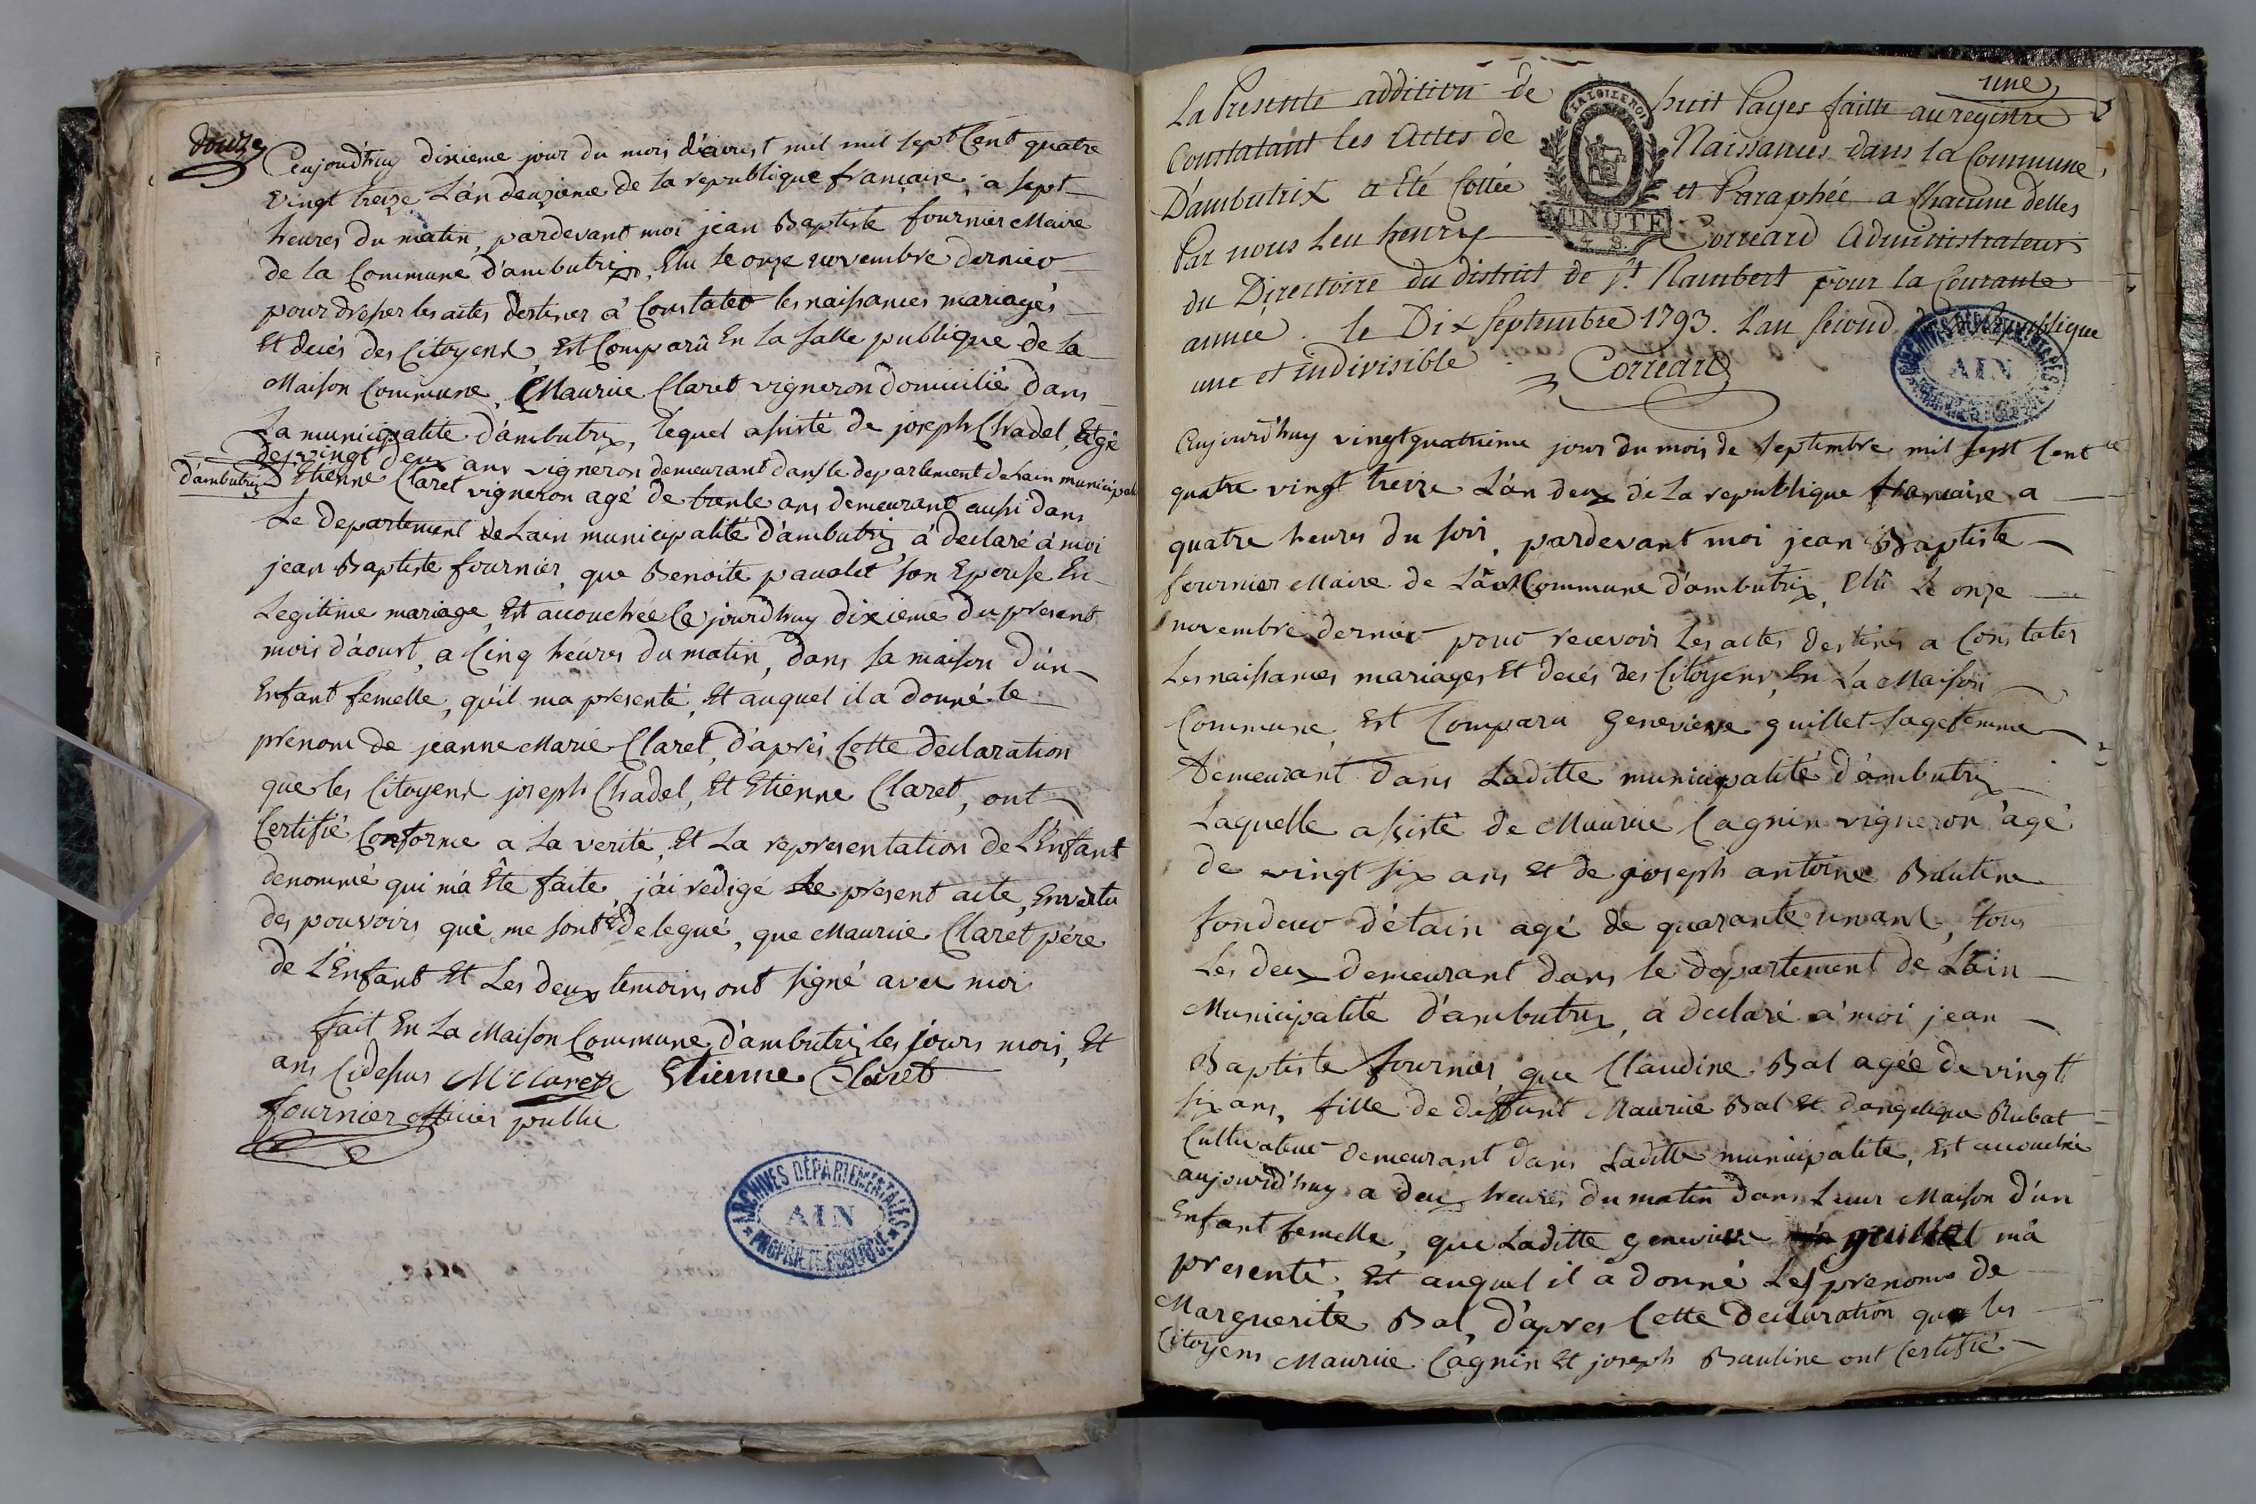 douze
Cejourd'huy dixieme jour du mois d'aoust mil mil sept Cent quatre
vingt treize L'an deuxieme de la republique française, a sept
heures du matin, pardevant moi jean Baptiste fournier Maire
de la Commune d'ambutrix, Elu le onze novembre dernier
pour dresser les actes destines à Constater les naissances mariages
Et decés des Citoyens, Est Comparû En la Salle publique de la
Maison Commune, Maurice Claret vigneron domicilié dans
La municipalité d'ambutrix, lequel assisté de joseph Chadel, Agé
de vingt deux ans vigneron demeurant dans le departement de Lain municipalité
d'ambutrix Etienne Claret vigneron agé de trente ans demeurant aussi dans
Le departement de Lain municipalité d'ambutrix à declaré à moi
jean Baptiste fournier, que Benoite paualet son Epouse En
Legitime mariage, Est accouchée Ce jourd'huy dixieme du present
mois d'aoust, a Cinq heures du matin, dans sa maison d'un
Enfant femelle, qu'il ma presenté, Et auquel il a donné le
prenom de jeanne Marie Claret, d'aprés Cette declaration
que les Citoyens joseph Chadel, Et Etienne Claret, ont
Certifié Conforme a La verité, Et La representation de L'Enfant
denommé qui m'a Ête faite, j'ai redigé Le présent acte, En vertu
des pouvoirs qui me sont Delegué, que Maurice Claret pére
de L'Enfant Et Les deux temoins ont signé avec moi
fait En La Maison Commune d'ambutrix les jours mois, Et
ans Cidessus M Claret Etienne Claret
fournier officier public
ARCHIVES DÉPARTEMENTALES
AIN
PROPRIÉTÉ PUBLIQUE
une
La Presente addition de huit Pages faitte au registre
Constatant les Actes de Naissances dans la Commune
D'ambutrix a Eté Cottée et Paraphée a Chacune delles
Par nous Leu henry Corréard Administrateur
LA LOI LE ROI
MINUTE
4. S.
du Directoire du district de St. Rambert pour la Courante
année. le Dix Septembre 1793. L'an second de la Republique
une et indivisible Correard
ARCHIVES DÉPARTEMENTALES
AIN
Aujourd'huy vingt quatrieme jour du mois de Septembre mil sept Cent
quatre vingt treize L'an deux de La republique francaise a
quatre heures du soir, pardevant moi jean Baptiste
fournier Maire de La Commune d'ambutrix, Elû Le onze
novembre dernier pour recevoir Les actes destines a Constater
Les naissances mariages Et decés des Citoyens, En La Maison
Commune, Est Comparu Genevieve guillet sagefemme
Demeurant dans Laditte municipalité d'ambutrix
Laquelle assisté de Maurice Cagnin vigneron âgé
de vingt six ans Et de joseph antoine Bauline
fondeur d'étain agé de quarante un ans, tous
Les deux demeurant dans le departement de Lain
Municipalité d'ambutrix, à declaré a moi jean
Baptiste fournier, que Claudine Bal agée de vingt
six ans, fille de deffunt Maurice Bal Et d'angelique Rubat
Cultivateur demeurant dans Laditte municipalite, Est accouchée
aujourd'huy a deux heures du matin dans Leur Maison d'un
Enfant femelle, que Laditte genevieve guillet m'à
presenté, Et auquel il a donné Les prenoms de
Marguerite Bal, d'apres Cette declaration que les
Citoyens Maurice Cagnin Et joseph Bauline ont Certifié